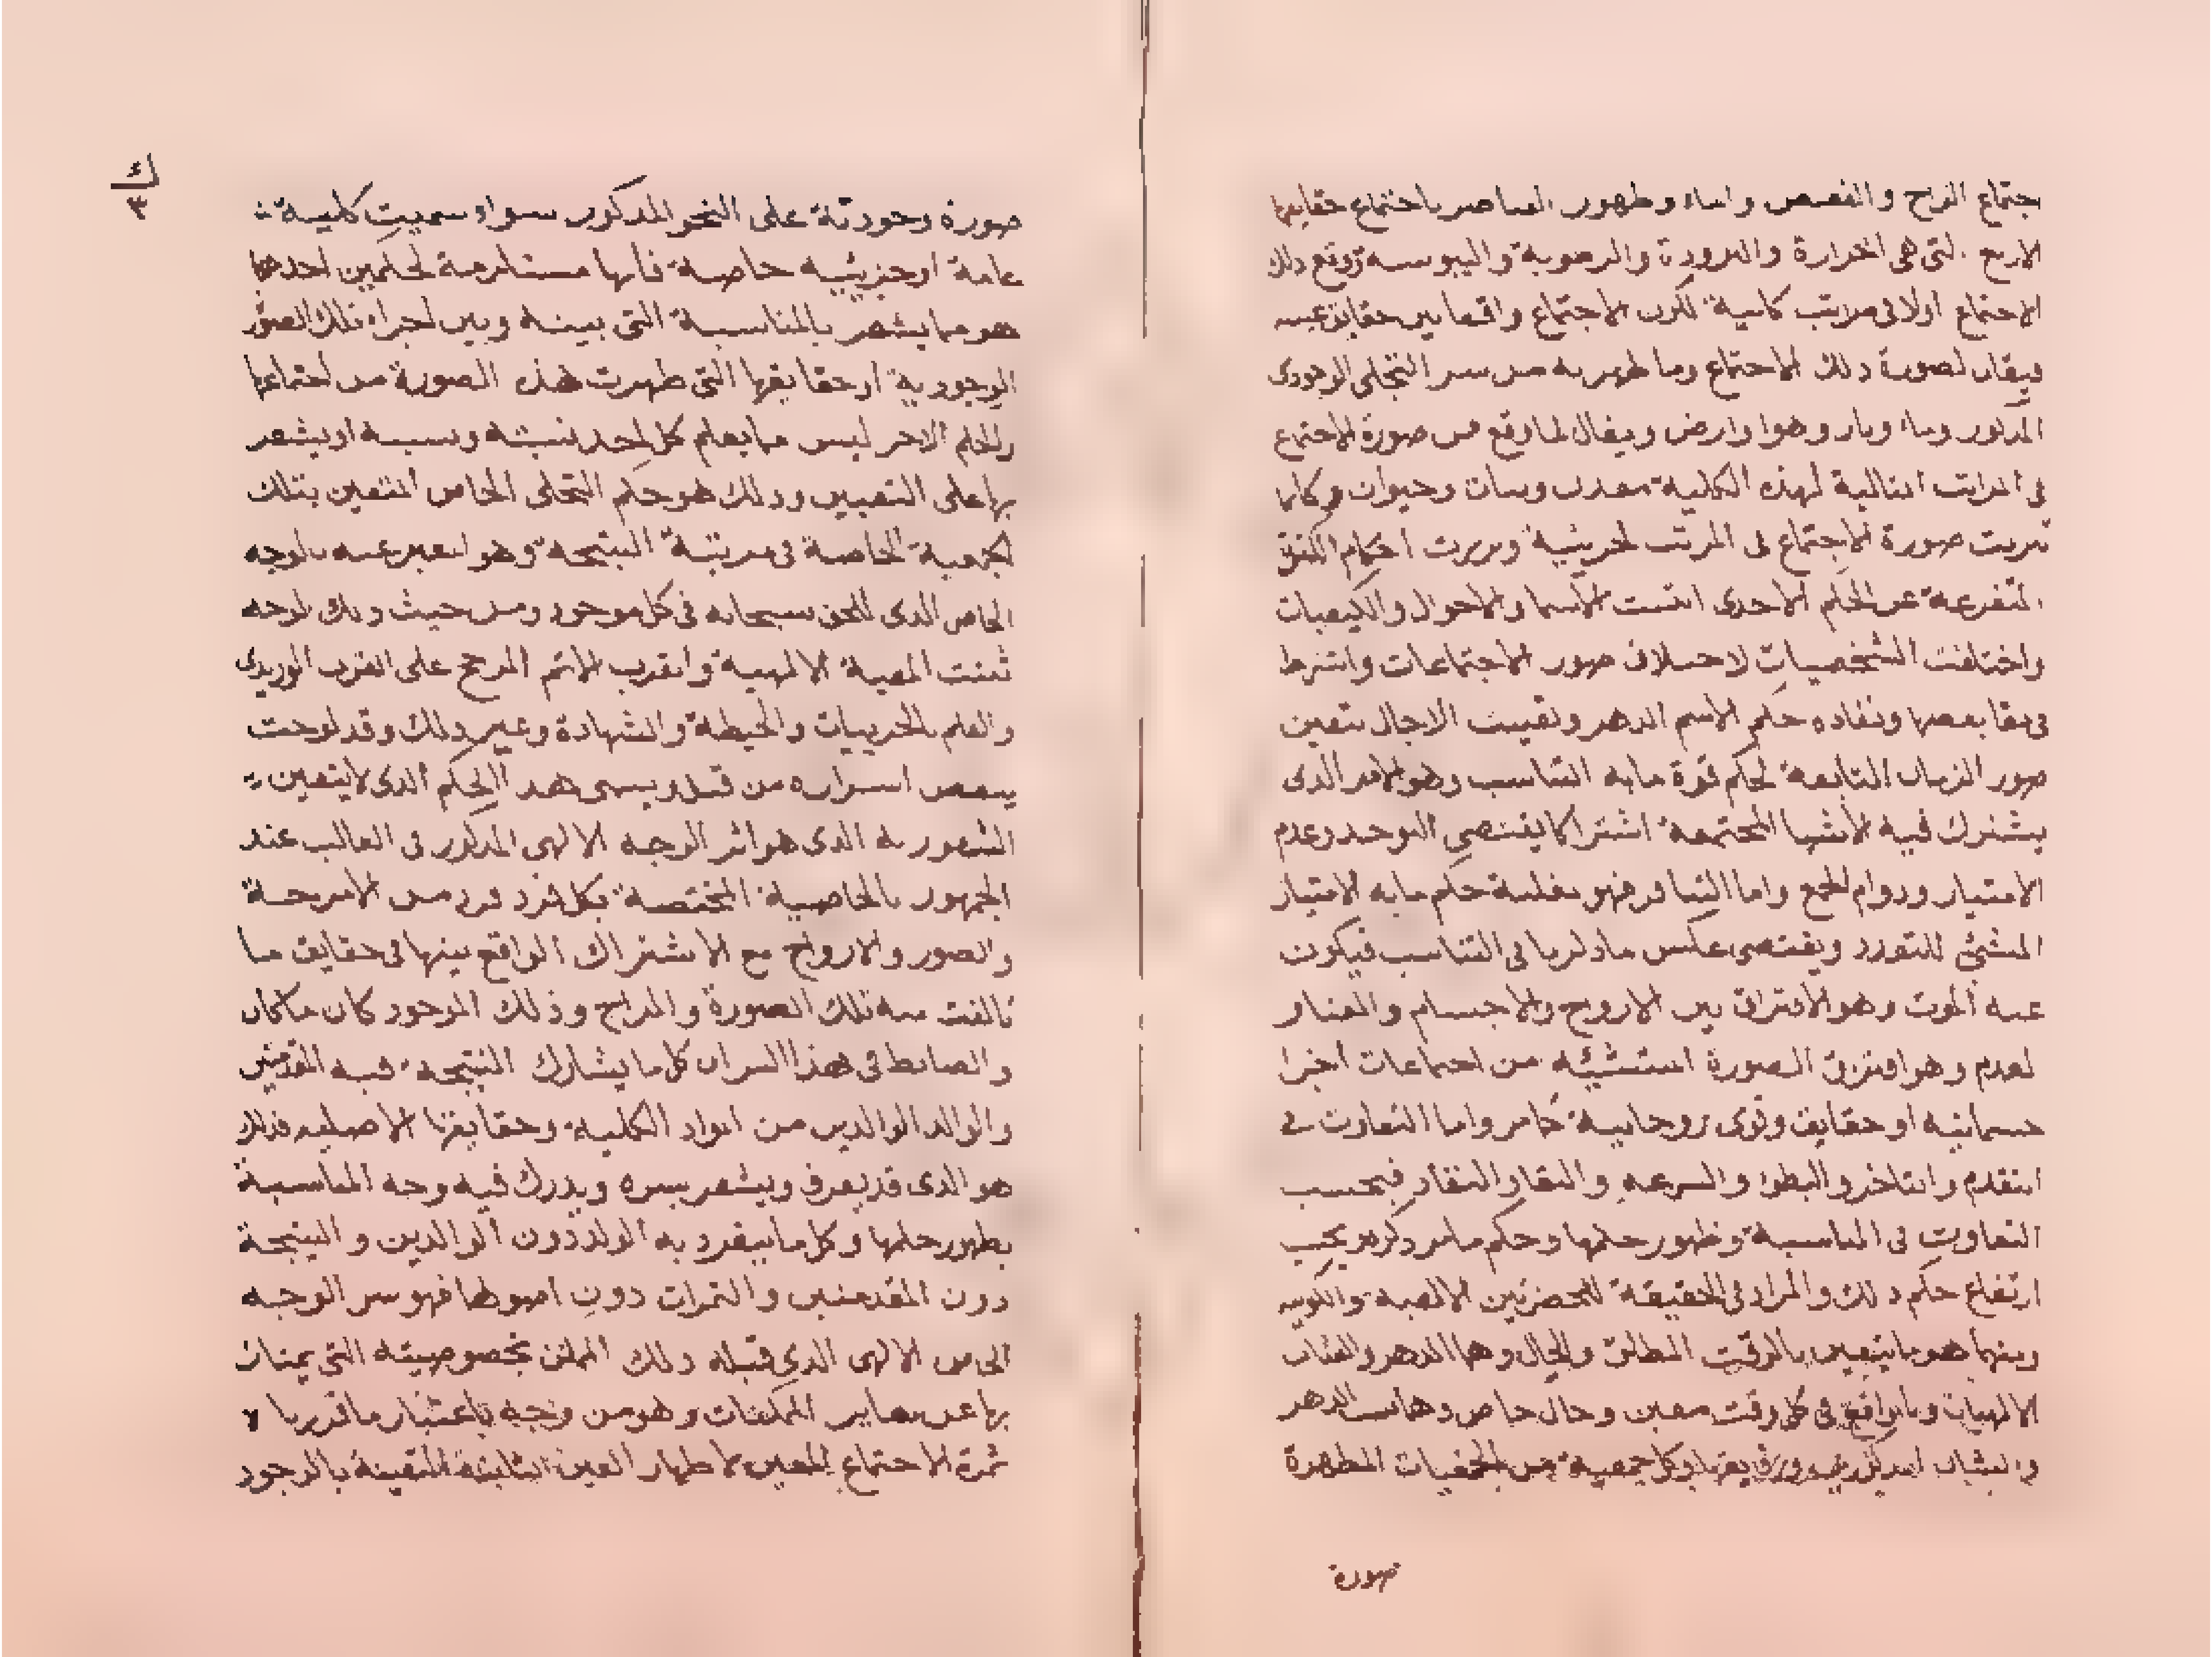 اجتماع الزاج والعفص والماء وظهور العناصر باجتماع حقايقها
الاربع التى هى الحرارة والبرودة والرطوبة واليبوسة ووقع ذلك
الاجتماع اولا فى مراتب كلية لكون الاجتماع واقعا بين حقايق
فيقال لصورة ذلك الاجتماع وما ظهر به من سر التجلى الوجودى
المذكور وماء ونار وهوا وارض ويقال لما وقع من صورة الاجتماع
فى المراتب التالية لهذه الكلية معدن ونبات وحيوان وكلما
صورة الاجتماع فى المراتب الجزيئية احكام
المتفرعة عن الحكم الاحدى الاسما والاحوال والكيفيات
واختلفت الشخصيات لاختلاف صور الاجتماعات واشترط
فى بقا بعضها ونفاده حكم الاسم الدهر الاجال بتعين
صور الزمان التابعة لحكم قوة ما به التناسب وهو الامر الذى
يشترك فيه الاشيا المجتمعة اشتراكا يقتضى التوحد وعدم
الامتياز ودوام الجمع واما التنافر فهو بغلبة حكم ما به الامتياز
ويقتضى عكس ما ذكرنا فى التناسب فيكون
عنه الموت وهو الافتراق بين الارواح والاجسام والفناء و
لعدم وهو افتراق الصورة من اجتماعات اجزا
جسمانية او حقايق وقوى روحانية كما مر واما التفاوت فى
التقدم والتاخر والبطؤ والسرعة والبقا والنفاد فبحسب
التفاوت فى المناسبة وظهور حكمها وحكم ما مر ذكره
ارتفاع حكم ذلك والمراد فى الحقيقة للحضرتين الالهية والكونية
ومنها هو ما يتعين بالوقت المطلق والحال وهما الدهر والشان
الالهيان وما واقع فى كل وقت معين وحال خاص وهما الدهر
والشان وكل جمعية من الجمعيات المظهرة
صورة
ك
٣
صورة وجودية على النحو المذكور سواء سميت كلية
عامة او جزيئية خاصة فانها مستلزمة لحكمين احدهما
هو ما يشعر بالمناسبة التى بينه وبين اجزاء تلك الصور
الوجودية او حقايقها التى ظهرت هذه الصورة من اجتماعها
والحكم الاخر ليس مما يعلم كل احد نسبته او يشعر
بها على التعيين وذلك هو حكم التجلى الخاص المتعين بتلك
الجمعية الخاصة فى مرتبة النتيجة وهو المعبر عنه بالوجه
الخاص الذى للحق سبحانه فى كل موجود ومن حيث ذلك الوجه
ثبتت المعية الالهية والقرب الاتم المرجح على القرب الوريدى
والعلم بالجزييات والحيطة والشهادة وغير ذلك وقد لوحت
ببعض اسراره من قبل ويسمى هذا الحكم الذى لا يتعين
الشعور به الذى هو اثر الوجه الالهى المذكور فى الغالب عند
الجمهور بالخاصية المختصة بكل فرد فرد من الامزجة
والصور والارواح مع الاشتراك الواقع بينها فى حقايق ما
تالفت منه تلك الصورة والمزاج وذلك الموجود كان ما كان
والضابط فى هذا السران كل ما يشارك النتيجة فيه المقدمتين
والولد الوالدين من المواد الكلية وحقايقها الاصلية فذلك
هو الذى قد يعرف ويشعر بسره ويدرك فيه وجه المناسبة
بظهور حكمها وكل ما ينفرد به الولد دون الوالدين والنتيجة
دون المقدمتين والثمرات دون اصولها فهو سر الوجه
الخاص الالهى الذى قبله ذلك الممكن بخصوصيته التى يمتاز
بها عن ساير الممكنات وهو من وجه باعتبار ما قررنا لا
ثمرة الاجتماع المعين لاظهار العين الثابتة المتعينة بالوجود